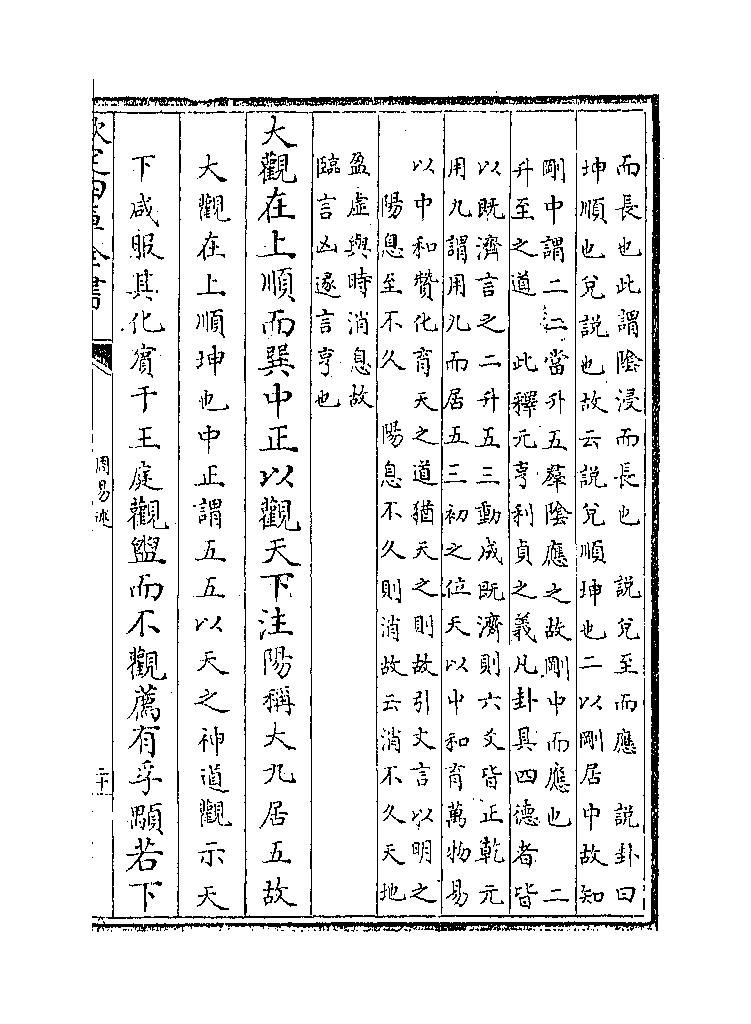 而長也此謂陰浸而長也　説兌至而應　説卦曰
坤順也兌説也故云説兌順坤也二以剛居中故知
剛中謂二二當升五羣陰應之故剛中而應也　二
升至之道　此釋元亨利貞之義凡卦具四德者皆
以既濟言之二升五三動成既濟則六爻皆正乾元
用九謂用九而居五三初之位天以中和育萬物易
以中和贊化育天之道猶天之則故引文言以明之
陽息至不久　陽息不久則消故云消不久天地
盈虛與時消息故
臨言凶遂言亨也
大觀在上順而巽中正以觀天下注陽稱大九居五故
大觀在上順坤也中正謂五五以天之神道觀示天
下咸服其化賓于王庭觀盥而不觀薦有孚顒若下
欽定四庫全書
周易述
二十